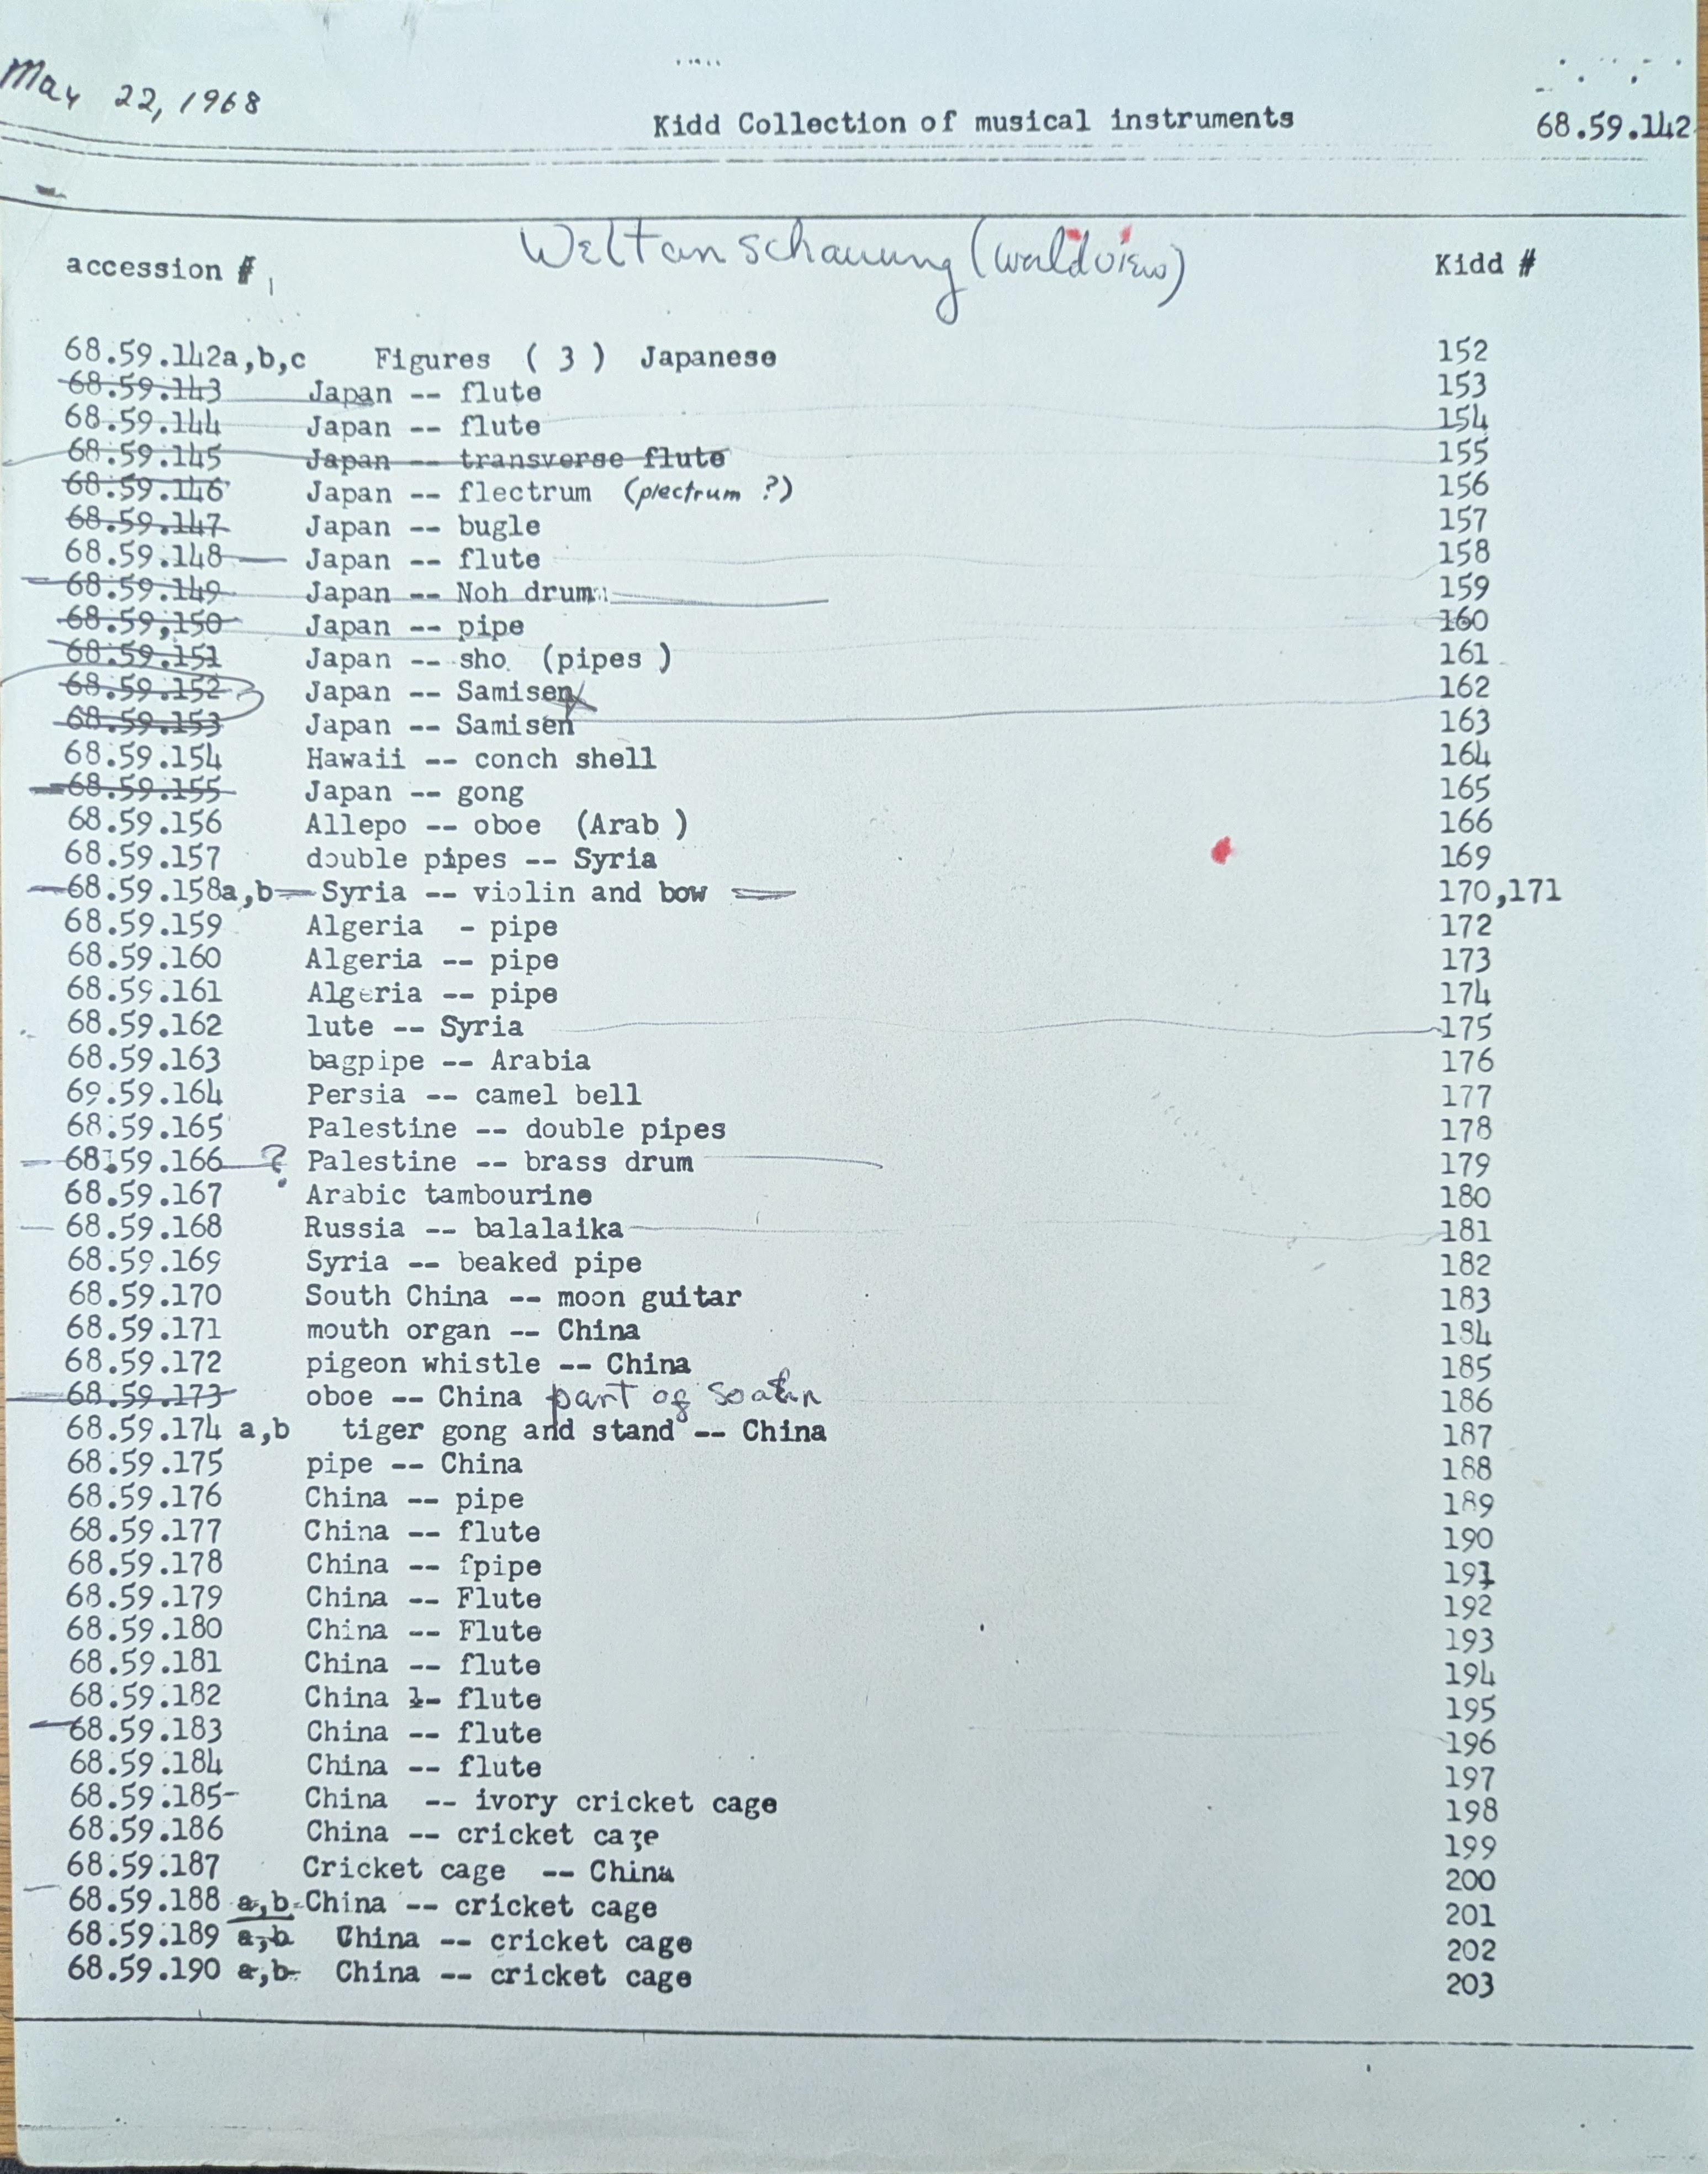 May 22, 1968
Kidd Collection of musical instruments 68.59.142
Weltanschauung (worldview)
accession # Kidd #
68.59.142a,b,c Figures ( 3 ) Japanese 152
68.59.143 Japan -- flute 153
68.59.144 Japan -- flute 154
68.59.145 Japan -- transverse flute 155
68.59.146 Japan -- flectrum (plectrum ?) 156
68.59.147 Japan -- bugle 157
68.59.148 Japan -- flute 158
68.59.149 Japan -- Noh drum 159
68.59,150 Japan -- pipe 160
68.59.151 Japan -- sho (pipes ) 161
68.59.152 Japan -- Samisen 162
68.59.153 Japan -- Samisen 163
68.59.154 Hawaii -- conch shell 164
68.59.155 Japan -- gong 165
68.59.156 Allepo -- oboe (Arab ) 166
68.59.157 double pipes -- Syria 169
68.59.158a,b Syria -- violin and bow 170,171
68.59.159 Algeria - pipe 172
68.59.160 Algeria -- pipe 173
68.59.161 Algeria -- pipe 174
68.59.162 lute -- Syria 175
68.59.163 bagpipe -- Arabia 176
69.59.164 Persia -- camel bell 177
68.59.165 Palestine -- double pipes 178
68.59.166 ? Palestine -- brass drum 179
68.59.167 Arabic tambourine 180
68.59.168 Russia -- balalaika 181
68.59.169 Syria -- beaked pipe 182
68.59.170 South China -- moon guitar 183
68.59.171 mouth organ -- China 184
68.59.172 pigeon whistle -- China 185
68.59.173 oboe -- China part of 186
68.59.174 a,b tiger gong and stand -- China 187
68.59.175 pipe -- China 188
68.59.176 China -- pipe 189
68.59.177 China -- flute 190
68.59.178 China -- fpipe 191
68.59.179 China -- Flute 192
68.59.180 China -- Flute 193
68.59.181 China -- flute 194
68.59.182 China -- flute 195
68.59.183 China -- flute 196
68.59.184 China -- flute 197
68.59.185- China -- ivory cricket cage 198
68.59.186 China -- cricket cage 199
68.59.187 Cricket cage -- China 200
68.59.188 a,b China -- cricket cage 201
68.59.189 a,b China -- cricket cage 202
68.59.190 a,b China -- cricket cage 203